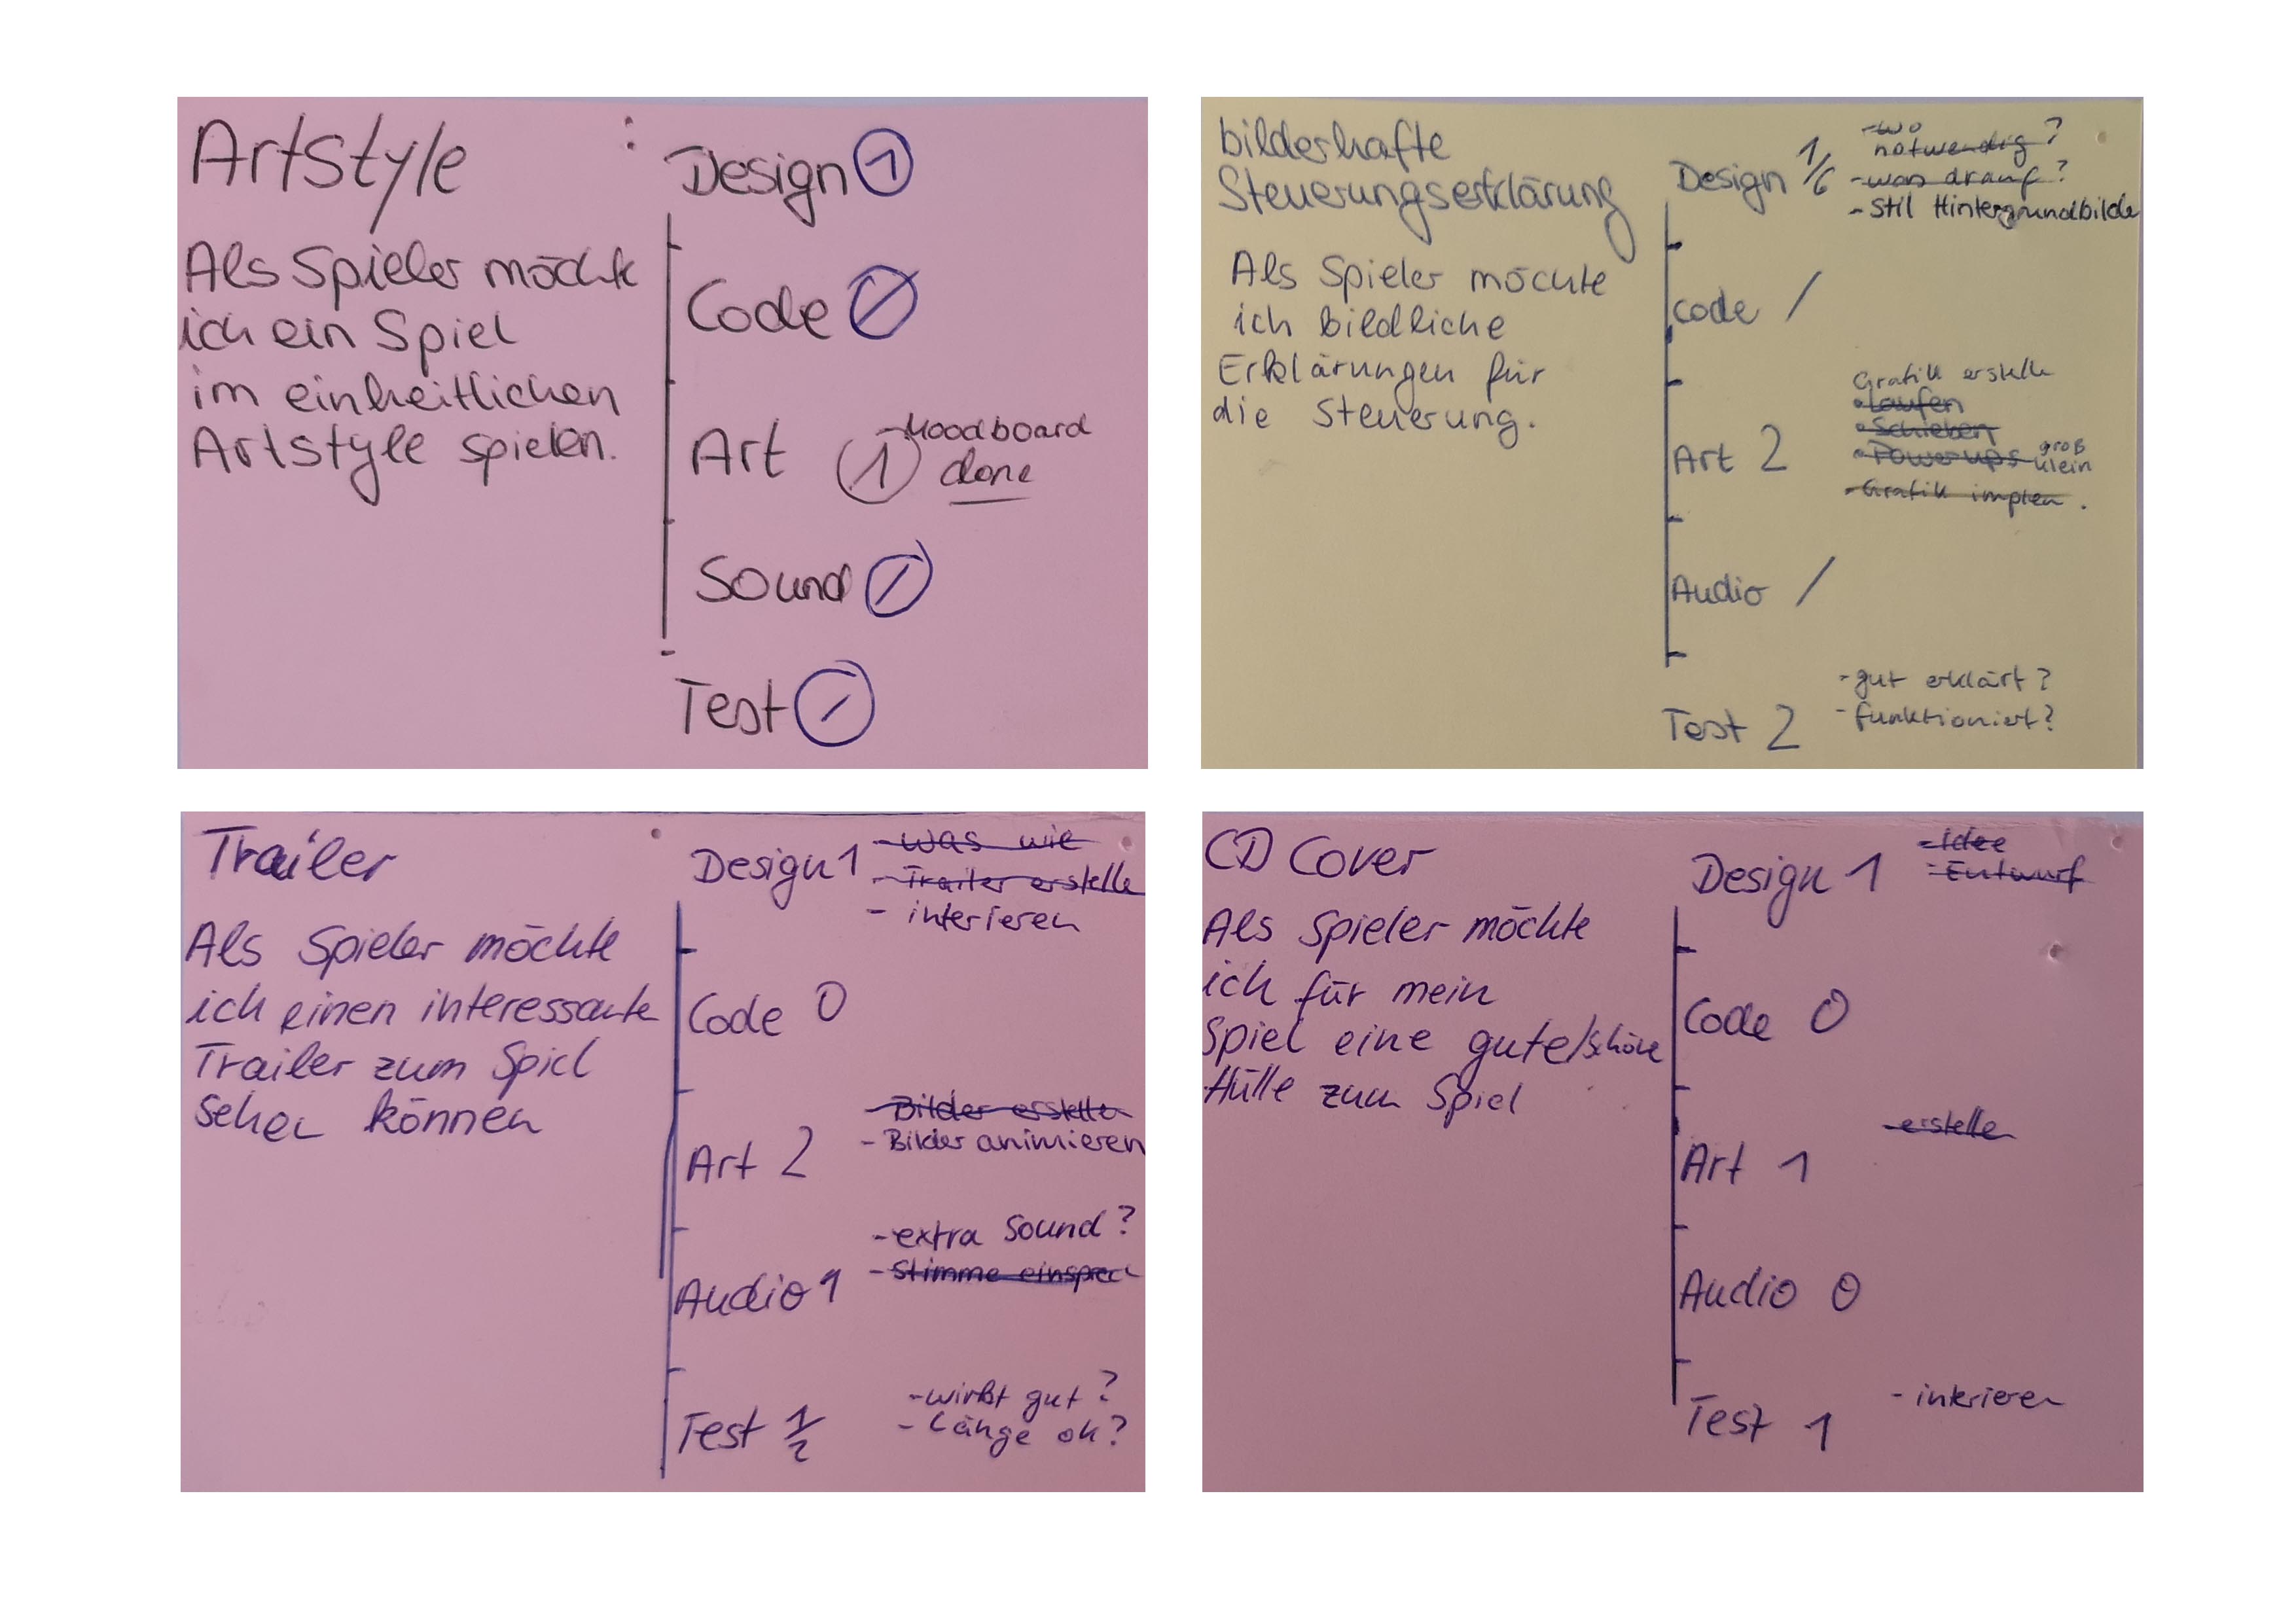 Artstyle
Als Spieler möchte
ich ein Spiel
im einheitlichen
Artstyle spielen.
Design 1
Code /
Art 1 - Moodboard
done
Sound /
Test /
bilderhafte
Steuerungserklärung
Als Spieler möchte
ich bildliche
Erklärungen für
die Steuerung.
Design 1/6
- wo
notwendig?
- was drauf?
- Stil Hintergrundbilde
Code /
Grafik erstelle
• Laufen
• Schieben
• Powerups groß
klein
- Grafik implen.
Art 2
Audio /
Test 2
- gut erklärt?
- funktioniert?
Trailer
Als Spieler möchte
ich einen interessante
Trailer zum Spiel
sehen können
Design 1
- Was wie
- Trailer erstelle
- interieren
Code 0
Art 2
- Bilder erstelle
- Bilder animieren
Audio 1
- extra Sound?
- Stimme einsprec
Test 1/2
- wirkt gut?
- Länge ok?
CD Cover
Als Spieler möchte
ich für mein
Spiel eine gute/schöne
Hülle zum Spiel
Design 1
- Idee
- Entwurf
Code 0
Art 1
- erstelle
Audio 0
Test 1
- interieren